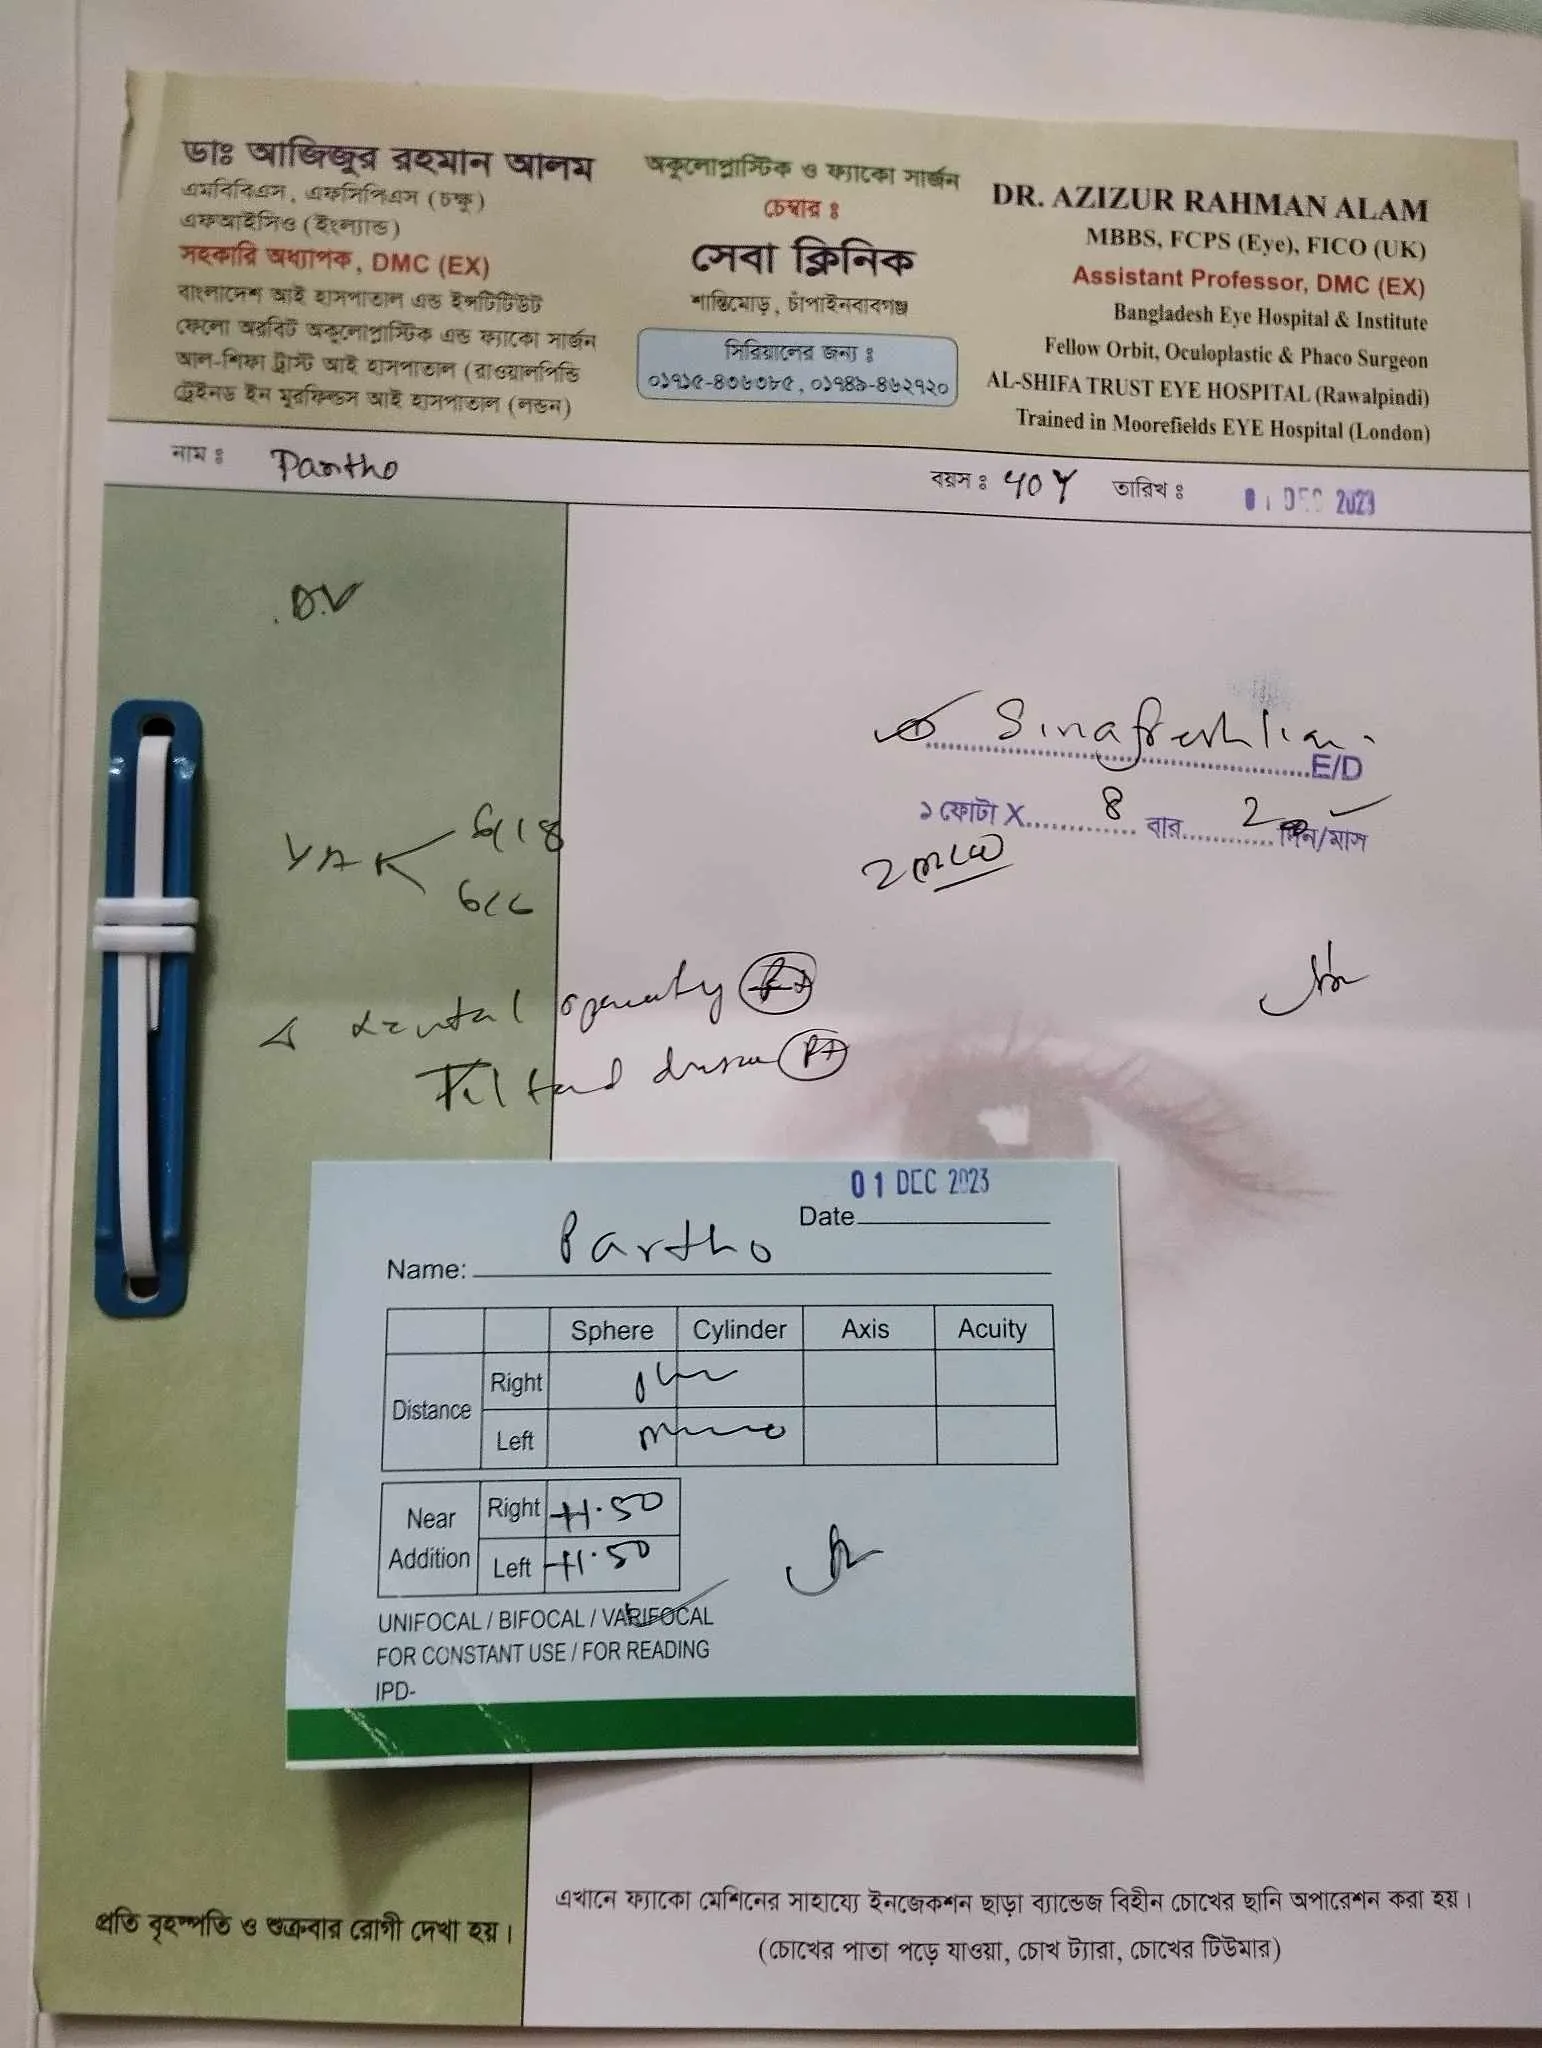 ডাঃ আজিজুর রহমান আলম
এমবিবিএস, এফসিপিএস (চক্ষু)
এফআইসিও (ইংল্যান্ড)
সহকারি অধ্যাপক, DMC (EX)
বাংলাদেশ আই হাসপাতাল এন্ড ইন্সটিটিউট
ফেলো অরবিট অকুলোপ্লাস্টিক এন্ড ফ্যাকো সার্জন
আল-শিফা ট্রাস্ট আই হাসপাতাল (রাওয়ালপিন্ডি
ট্রেইনড ইন মুরফিল্ডস আই হাসপাতাল (লন্ডন)
অকুলোপ্লাস্টিক ও ফ্যাকো সার্জন
চেম্বার ঃ
সেবা ক্লিনিক
শান্তিমোড়, চাঁপাইনবাবগঞ্জ
সিরিয়ালের জন্য ঃ
০১৭১৫-৪৩৬৩৮৫, ০১৭৪৯-৪৬২৭২০
DR. AZIZUR RAHMAN ALAM
MBBS, FCPS (Eye), FICO (UK)
Assistant Professor, DMC (EX)
Bangladesh Eye Hospital & Institute
Fellow Orbit, Oculoplastic & Phaco Surgeon
AL-SHIFA TRUST EYE HOSPITAL (Rawalpindi)
Trained in Moorefields EYE Hospital (London)
নাম ঃ Partho বয়স ঃ 40 Y তারিখ ঃ 01 DEC 2023
D.V
E/D
১ ফোটা X 8 বার 2 দিন/মাস
VA 6/18
6/6
01 DEC 2023
Date
Name: Partho
Sphere Cylinder Axis Acuity
Distance Right
Left
Near Addition Right +1.50
Left +1.50
UNIFOCAL / BIFOCAL / VARIFOCAL
FOR CONSTANT USE / FOR READING
IPD-
প্রতি বৃহস্পতি ও শুক্রবার রোগী দেখা হয়।
এখানে ফ্যাকো মেশিনের সাহায্যে ইনজেকশন ছাড়া ব্যান্ডেজ বিহীন চোখের ছানি অপারেশন করা হয়।
(চোখের পাতা পড়ে যাওয়া, চোখ ট্যারা, চোখের টিউমার)